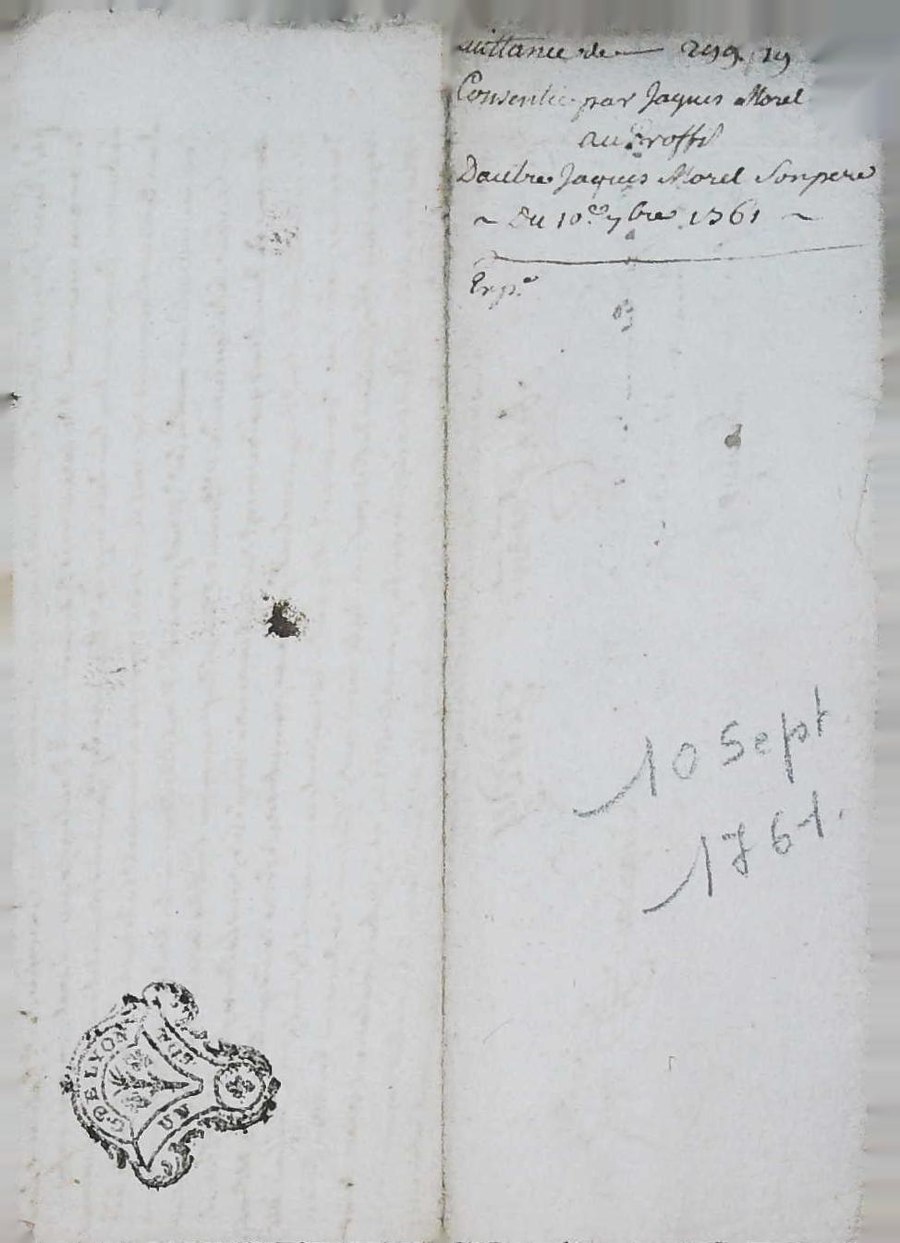 uittance de — 299. 19
Consentie par Jaques Morel
au Proffit
Dautre Jaques Morel Son pere
~ Du 10.e 7bre 1761 ~
Exp.e
10 Sept
1761.
G. DE LYON
UN